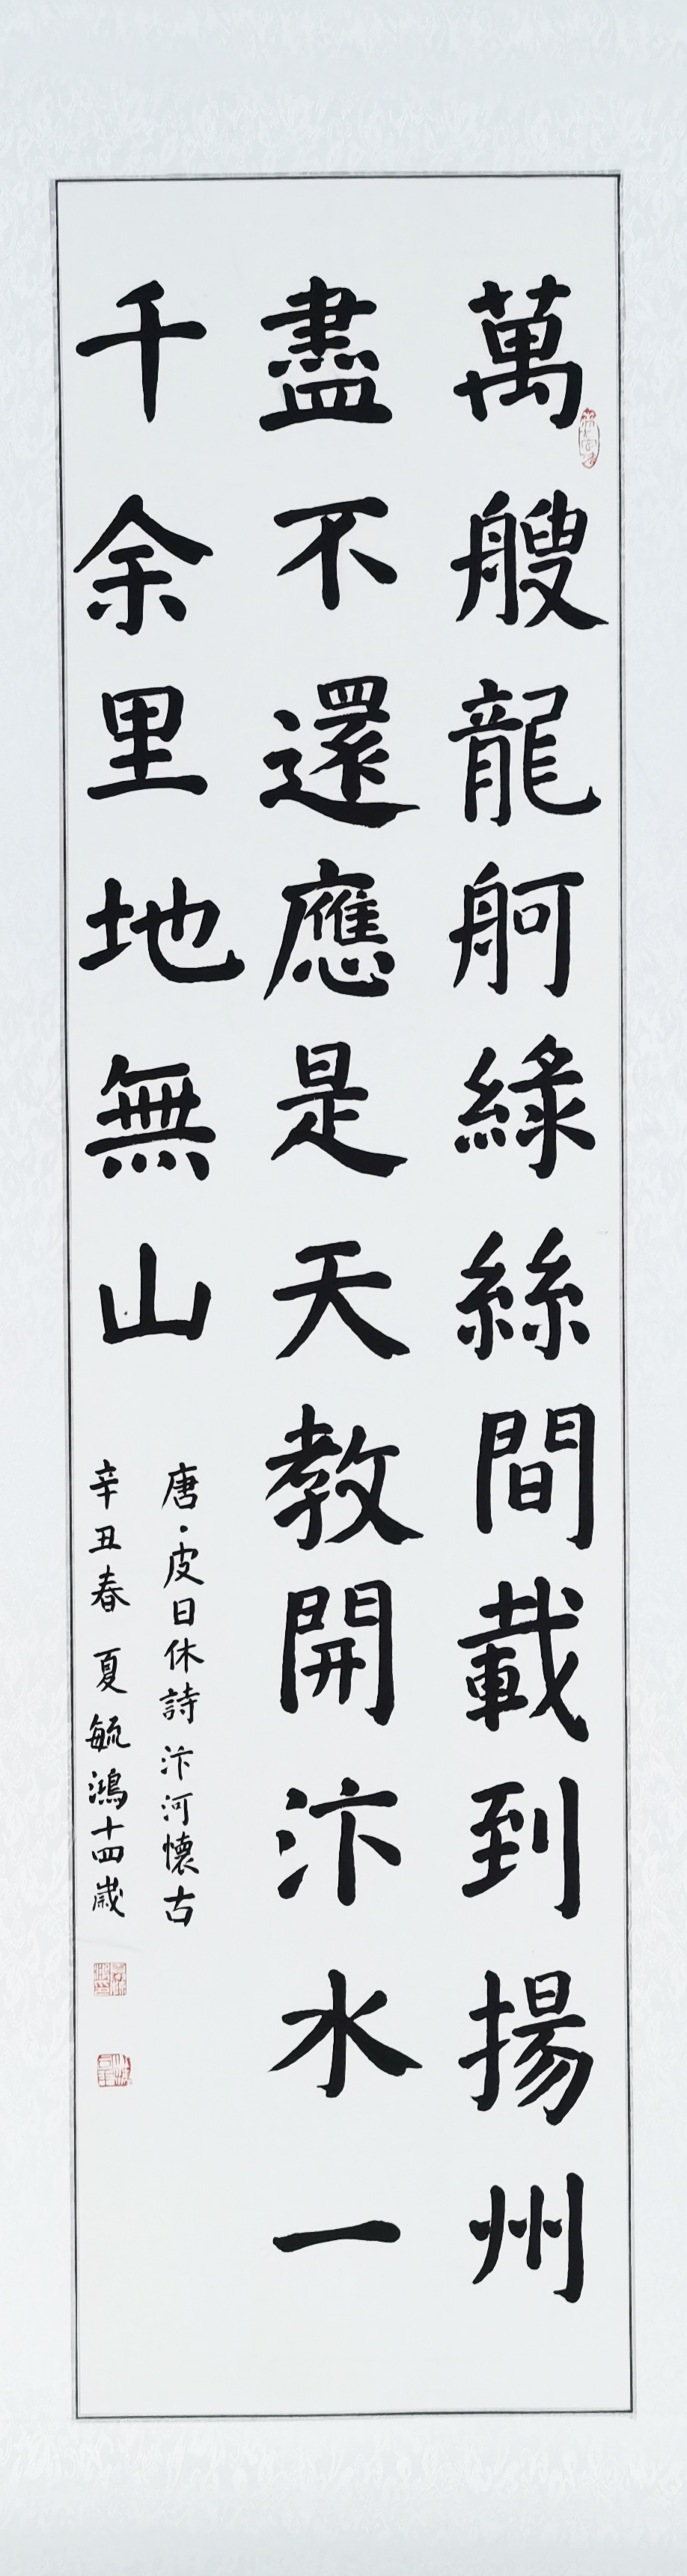 萬艘龍舸綠絲間載到揚州
盡不還應是天教開汴水一
千余里地無山
唐·皮日休詩 汴河懷古
辛丑春 夏毓鴻十四歲